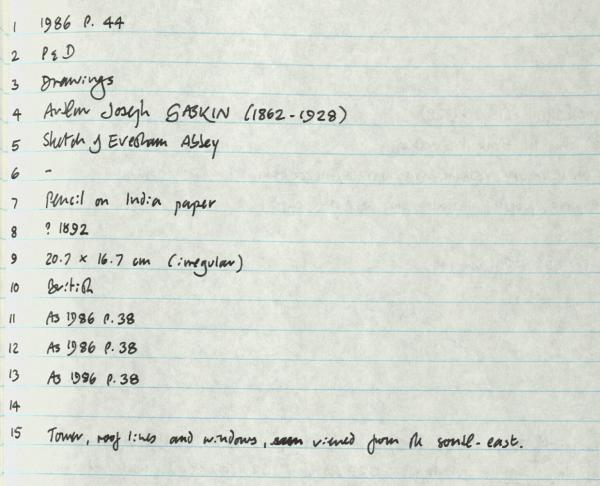 1 1986 P. 44
2 P & D
3 Drawings
4 Arthur Joseph GASKIN (1862-1928)
5 Sketch of Evesham Abbey
6 -
7 Pencil on India paper
8 ? 1892
9 20.7 × 16.7 cm (irregular)
10 British
11 As 1986 P.38
12 As 1986 P.38
13 As 1986 P.38
14
15 Tower, roof lines and windows, viewed from the south-east.